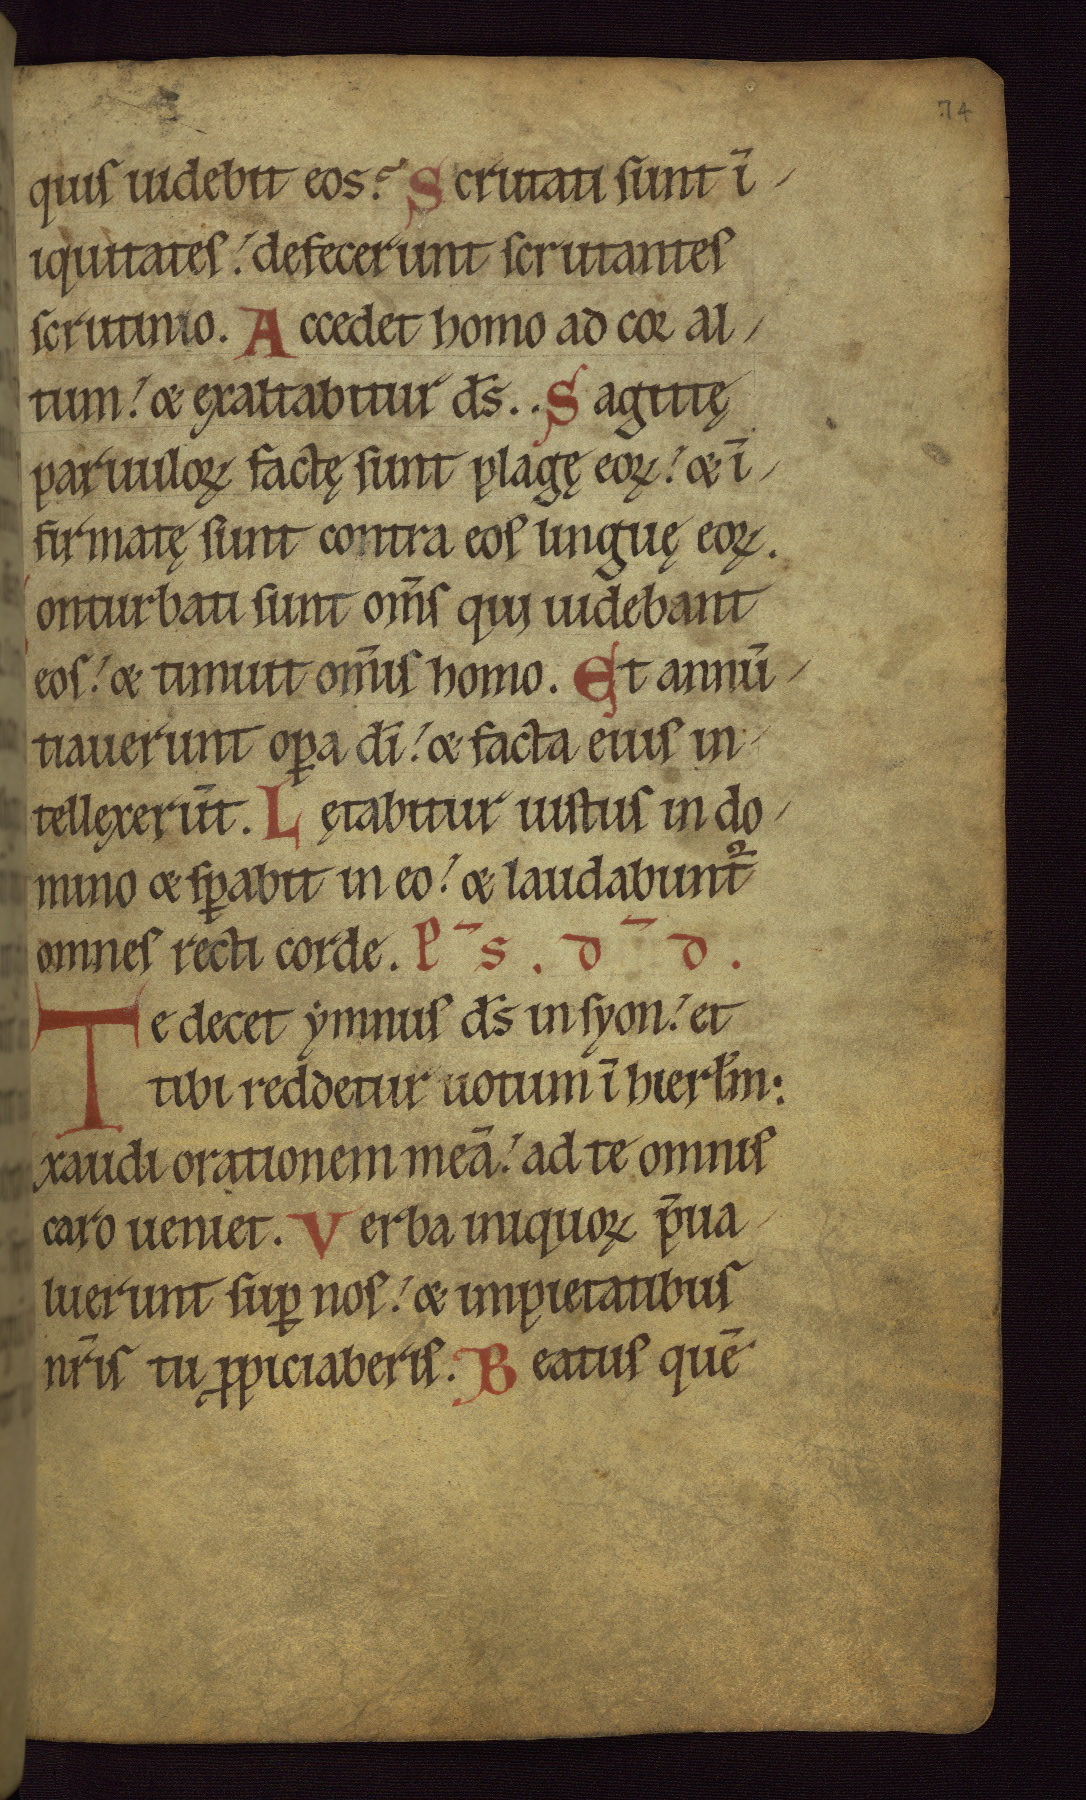 74
quis uidebit eos? Scrutati sunt ī
iquitates! defecerunt scrutantes
scrutinio. Accedet homo ad cor al
tum! & exaltabitur d̄s.. Sagittę
paruuloꝝ factę sunt plagę eoꝝ! & ī
firmatę sunt contra eos linguę eoꝝ.
onturbati sunt om̄s qui uidebant
eos! & timuit om̄is homo. Et annū
tiauerunt opa di! & facta eius in
tellexerūt. Lętabitur iustus in do
mino & sꝑabit in eo! & laudabunt᷑
omnes recti corde. P̄s. d̄d.
Te decet ẏmnus d̄s in syon! et
tibi reddetur uotum ī hierl̄m:
xaudi orationem meā! ad te omnis
caro ueniet. Verba iniquoꝝ p̄ua
luerunt suꝑ nos! & impietatibus
nr̄is tu ꝓpiciaberis. Beatus quē